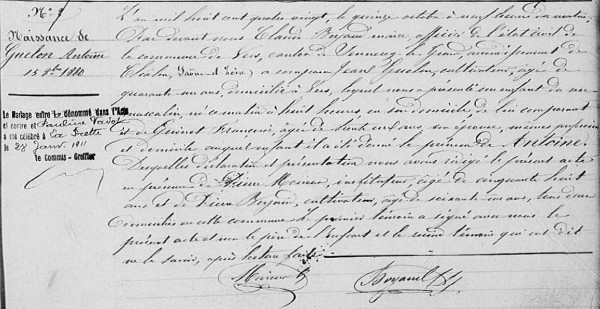 Naissance de
Guelon Antoine
15 8bre 1880
Le Mariage entre le dénommé dans l'Acte
ci contre et Pauline
a été célébré à La
le 28 Janv. 1911
le Commis-Greffier
L'an mil huit cent quatre vingt, le quinze octobre à neuf heures du matin,
Par devant nous Claude maire, officier de l'état civil de
la commune de Vers, canton de Sennecey le Grand, arrondissement de
Saône et Loire, a comparu Jean Guelon, cultivateur, âgé de
quarante un ans, domicilié à Vers, lequel nous a présenté un enfant du sexe
masculin, né ce matin à huit heures en son domicile, de lui comparant
et de Françoise, âgée de trente ans, son épouse, même profession
et domicile auquel enfant il a été donné le prénom de Antoine.
Lesquelles déclaration et présentation nous avons rédigé le présent acte
en présence de Pierre instituteur, âgé de cinquante huit
ans et de Pierre cultivateur, âgé de soixante un ans, tous deux
domiciliés en cette commune. Le premier témoin a signé avec nous le
présent acte et non le père de l'enfant et le second témoin qui ont dit
ne le savoir, après lecture faite.